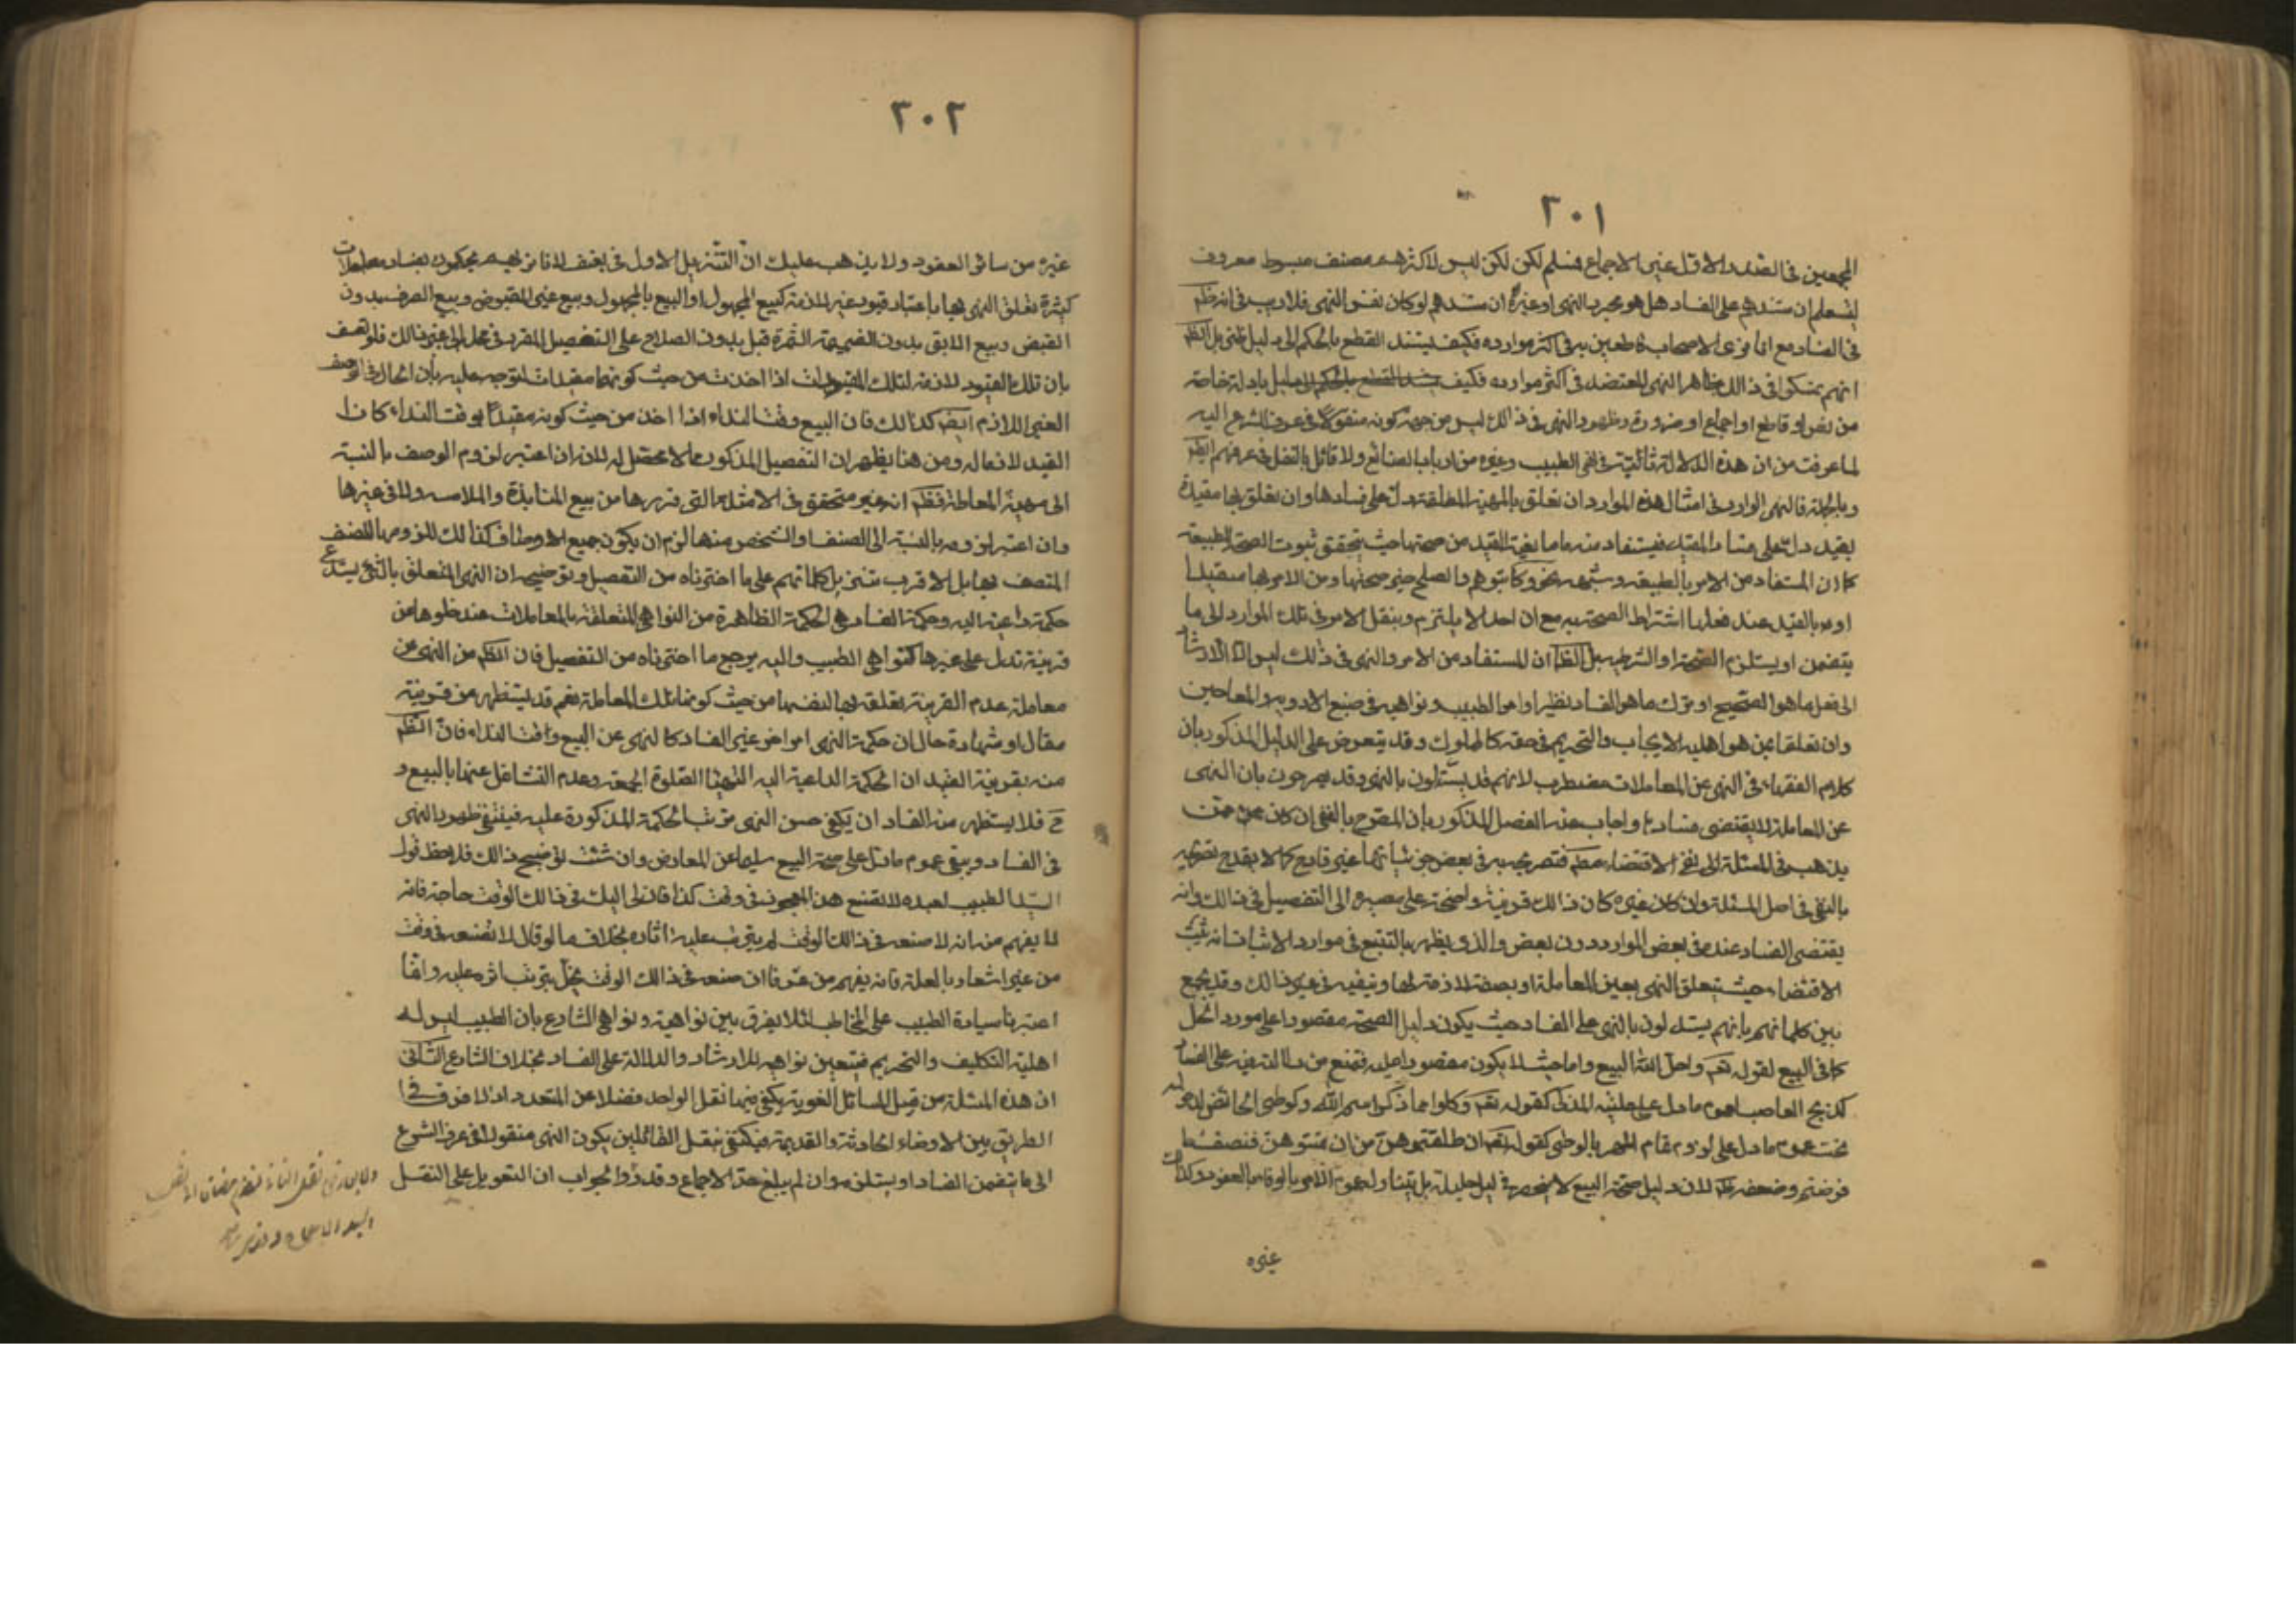 ٣٠١
المجمعين في الصدر الاول عين الاجماع فمسلم لكن لكن ليس لاكثرهم مصنف مبسوط معروف
ليعلم ان مستندهم على الفساد هل هو مجرد النهى او غيره ان مستندهم لو كان نفس النهى فلا ريب في انه ظم
في الفساد مع انا نرى الاصحاب قاطعين به في اكثر موارده فكيف يستند القطع بالحكم الى دليل ظنى بل الظم
انهم تمسكوا في ذالك بظاهر النهى المعتضد في اكثر موارده فكيف بادلة خاصة
من نص او قاطع او اجماع او ضرورة وظهور النهى في ذالك ليس من جهة كونه منقولا في عرف الشرع اليه
لما عرفت من ان هذه الدلالة ثابتة في نهى الطبيب وغيره من ارباب الصنائع ولا قائل بالنقل في عرفهم ايضا
وبالجملة فالنهى الوارد في امثال هذه الموارد ان تعلق بالمهية المطلقة دل على فسادها وان تعلق بها مقيدة
بقيد دل على فساد المقيد فيستفاد منه مانعية القيد من صحتها حيث يتحقق ثبوت الصحة للطبيعة
كما ان المستفاد من الامر بالطبيعة وشبهه نحو كاتبوهم والصلح خير صحتها ومن الامر بها مقيدا
او بالقيد عند فعلها اشتراط الصحة به مع ان احدا لا يلتزم بنقل الامر في تلك الموارد الى ما
يتضمن او يستلزم الصحة او الشرطية بل الظم ان المستفاد من الامر والنهى في ذلك ليس الا الارشاد
الى فعل ما هو الصحيح او ترك ما هو الفساد نظير اوامر الطبيب ونواهيه في صنع الادوية والمعاجين
وان تعلقا بمن هو اهلية الايجاب والتحريم في حقه كالمملوك وقد يتعرض على الدليل المذكور بان
كلام الفقهاء في النهى عن المعاملات مضطرب لانهم قد يستدلون بالنهى وقد يصرحون بان النهى
عن المعاملة لا يقتضى فسادها واجاب عنه الفصل المذكور بان المصرح بالنفى ان كان ممن
يذهب في المسئلة الى نفى الاقتضاء مطم فتصريحه به في بعض جزئياتها غير قادح كما لا يقدح تصريحه
بالنفى في اصل المسئلة وان كان غيره كان ذالك قرينة واضحة على مصيره الى التفصيل في ذالك وانه
يقتضى الفساد عنده في بعض الموارد دون بعض والذى يظهر بالتتبع في موارد الاثبات انه يثبت
الاقتضاء حيث يتعلق النهى بعين المعاملة او بصفة لازمة لها وينفيه في غير ذالك وقد يجمع
بين كلماتهم بانهم يستدلون بالنهى على الفساد حيث يكون دليل الصحة مقصورا على مورد الحل
كما في البيع لقوله تعم واحل الله البيع واما حيث لا يكون مقصورا عليه فتمنع من دلالته فيه على الفساد
كذبح الغاصب لعموم ما دل على حلية المذكى كقوله تعم وكلوا مما ذكر اسم الله وكوطى الحائض لدخوله
تحت عموم ما دل على لزوم تمام المهر بالوطى كقوله تعم ان طلقتموهن من ان تمسوهن فنصف ما
فرضتم وضعفه ظم لان دليل صحة البيع لا ينحصر في دليل حلية بل يتناوله عموم الامر بالوفاء بالعقود وكذا
غيره
٣٠٢
غيره من سائر العقود ولا يذهب عليك ان التنزيل الاول في نفسه لانا نريهم يحكمون بفساد معاملات
كثيرة تعلق النهى بها باعتبار قيود غير لازمة كبيع المجهول او البيع بالمجهول وبيع غير المقبوض وبيع الصرف بدون
القبض وبيع الابق بدون الضميمة الثمرة قبل بدو الصلاح على التفصيل المقرر في محله الى غير ذالك فلو تعسف
بان تلك القيود لازمة لتلك اذا اخذت من حيث كونها مقيدات لتوجه عليه بان الحال في الوصف
الغير اللازم ايضم كذالك فان البيع وقت النداء اذا اخذ من حيث كونه مقيدا بوقت النداء كان
القيد لازما له ومن هنا يظهر ان التفصيل المذكور مما لا محصل له لانه ان اعتبر لزوم الوصف بالنسبة
الى مهية المعاملة فظم انه غير متحقق في الامثلة التى قررها من بيع المنابذة والملامسة ولا في غيرها
وان اعتبر لزومه بالنسبة الى الصنف او الشخص منها لزم ان يكون جميع الاوصاف كذالك للزومها للصنف
المتصف بها بل الاقرب تنزيل كلماتهم على ما اخترناه من التفصيل وتوضيحه ان النهى المتعلق بالشئ يستدعى
حكمة داعية اليه وحكمة الفساد هى الحكمة الظاهرة من النواهى المتعلقة بالمعاملات عند خلوها من
قرينة تدل على غيرها كنواهى الطبيب واليه يرجع ما اخترناه من التفصيل فان الظم من النهى عن
معاملة عدم القرينة تعلقه بها لنفسها من حيث كونها تلك المعاملة نعم قد يستظهر من قرينة
مقال او شهادة حال ان حكمة النهى امر اخر غير الفساد كالنهى عن البيع وقت النداء فان الظم
منه بقرينة القيد ان الحكمة الداعية اليه الصلوة الجمعة وعدم التشاغل عنها بالبيع و
ح فلا يستظهر منه الفساد ان يكفى حسن النهى ترتب الحكمة المذكورة عليه فينتفى ظهور النهى
في الفساد ويبقى عموم ما دل على صحة البيع سليما عن المعارض وان شئت توضيح ذالك فلاحظ قول
السيد الطبيب لعبده لا تصنع هذا المعجون في وقت كذا فان لى اليك في ذالك الوقت حاجة فانه
لا يفهم منه انه لا صنعه في ذالك الوقت لم يترتب عليه اثاره بخلاف ما لو قال لا تصنعه في وقت
من غير اشعار بالعلة فانه يفهم من عرفا ان صنعه في ذالك الوقت يخل بترتب اثره عليه وانما
اعتبرنا سيادة الطبيب على المخاطب لئلا يفرق بين نواهيه ونواهى الشارع بان الطبيب ليس له
اهلية التكليف والتحريم فيتعين نواهيه للارشاد والدلالة على الفساد بخلاف الشارع الثانى
ان هذه المسئلة من قبيل المسائل اللغوية يكفى فيها نقل الواحد فضلا عن المتعدد اذ لا فرق في
الطريق بين الاوضاع الحادثة والقديمة فيكتفى بنقل القائلين بكون النهى منقولا في عرف الشرع
الى ما يتضمن الفساد او يستلزمه وان لم يبلغ حد الاجماع وقد والجواب ان التعويل على النقل